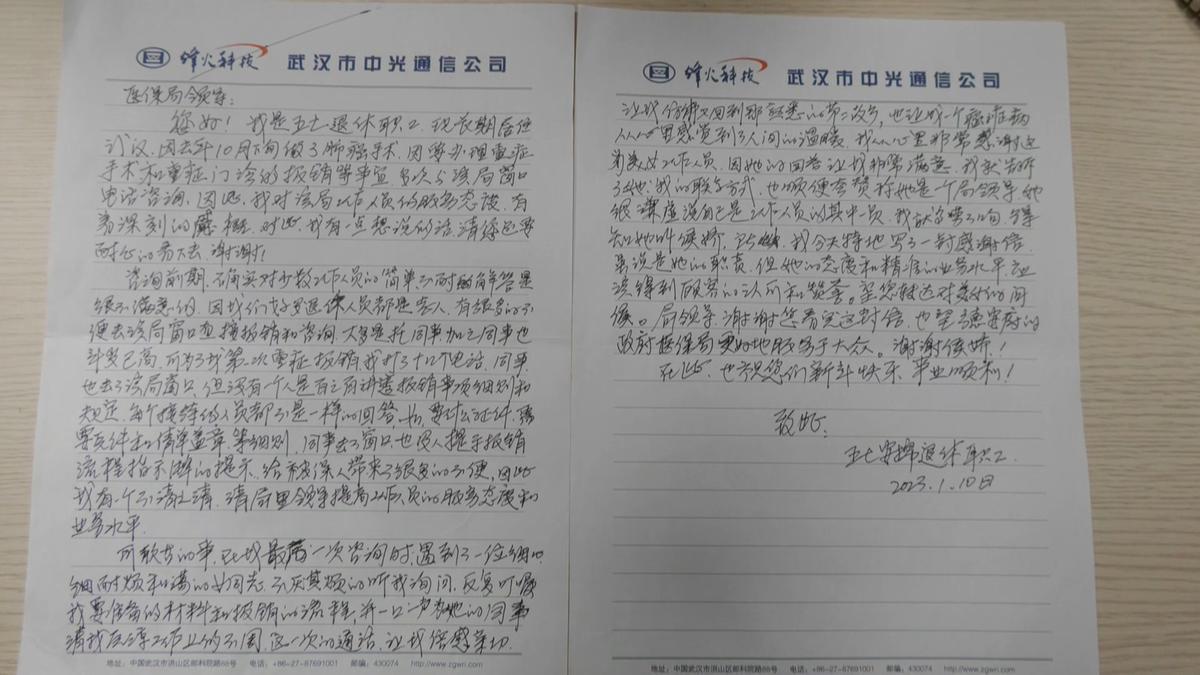 烽火科技 武汉市中光通信公司
医保局领导:
您好!我是五七退休职工,现长期居住
武汉,因去年10月下旬做了肺癌手术,因要办理重症
手术和重症门诊的报销等事宜,多次与该局窗口
电话咨询,因此,我对该局工作人员的服务态度,有
着深刻的感触,对此,我有一点想说的话请您还要
耐心的看下去,谢谢!
咨询前期,确实对少数工作人员的简单不耐的解答是
很不满意的,因我们好多退休人员都是老人,有很多的不
便去该局窗口直接报销和咨询,大多是托同事,加之同事也
年岁已高,
也去了该局窗口,但没有一个人是百之百讲透报销事项细则和
规定,每个接待的人员都不是一样的回答,如,要什么证件,需
要复印件和清单盖章,等细则,同事去了窗口也没人提示报销
流程指示牌的提示,给被保人带来了很多的不便,因此
我有一个不请之请,请局里领导提高工作人员的服务态度和
业务水平.
可歌的事,在我最后一次咨询时,遇到了一位细心
细耐烦和谒的女同志,不厌其烦的听我询问,反复叮嘱
我要准备的材料和报销的流程,并一口一声为她的同事
请我反谅工作上的不周,这一次的通话,让我倍感亲切.
地址:中国武汉市洪山区邮科院路88号 电话:+86-27-87691001 邮编:430074 http://www.zgwri.com
烽火科技 武汉市中光通信公司
让我仿佛又回到那熟悉的第二故乡,也让我一个癌症病
人从心里感觉到了人间的温暖,我从心里非常感谢这
位女工作人员,因她的回答让我非常满意,我就告诉
了她,我的联系方式,也顺便夸赞称她是个局领导,她
很谦虚说自己是工作人员的其中一员,我就多嘴了一句,得
知她叫侯娇,在此,我今天特地写了一封感谢信,
虽说是她的职责,但她的态度和精准的业务水平应
该得到顾客的认可和赞荟。望您转达对她的问
候。局领导,谢谢您看完这封信,也望德安府的
政府医保局更好地服务于大众。谢谢侯娇!
在此,也祝您们新年快乐,事业顺利!
致此:
五七安棉退休职工
2023.1.10日
地址:中国武汉市洪山区邮科院路88号 电话:+86-27-87691001 邮编:430074 http://www.zgwri.com